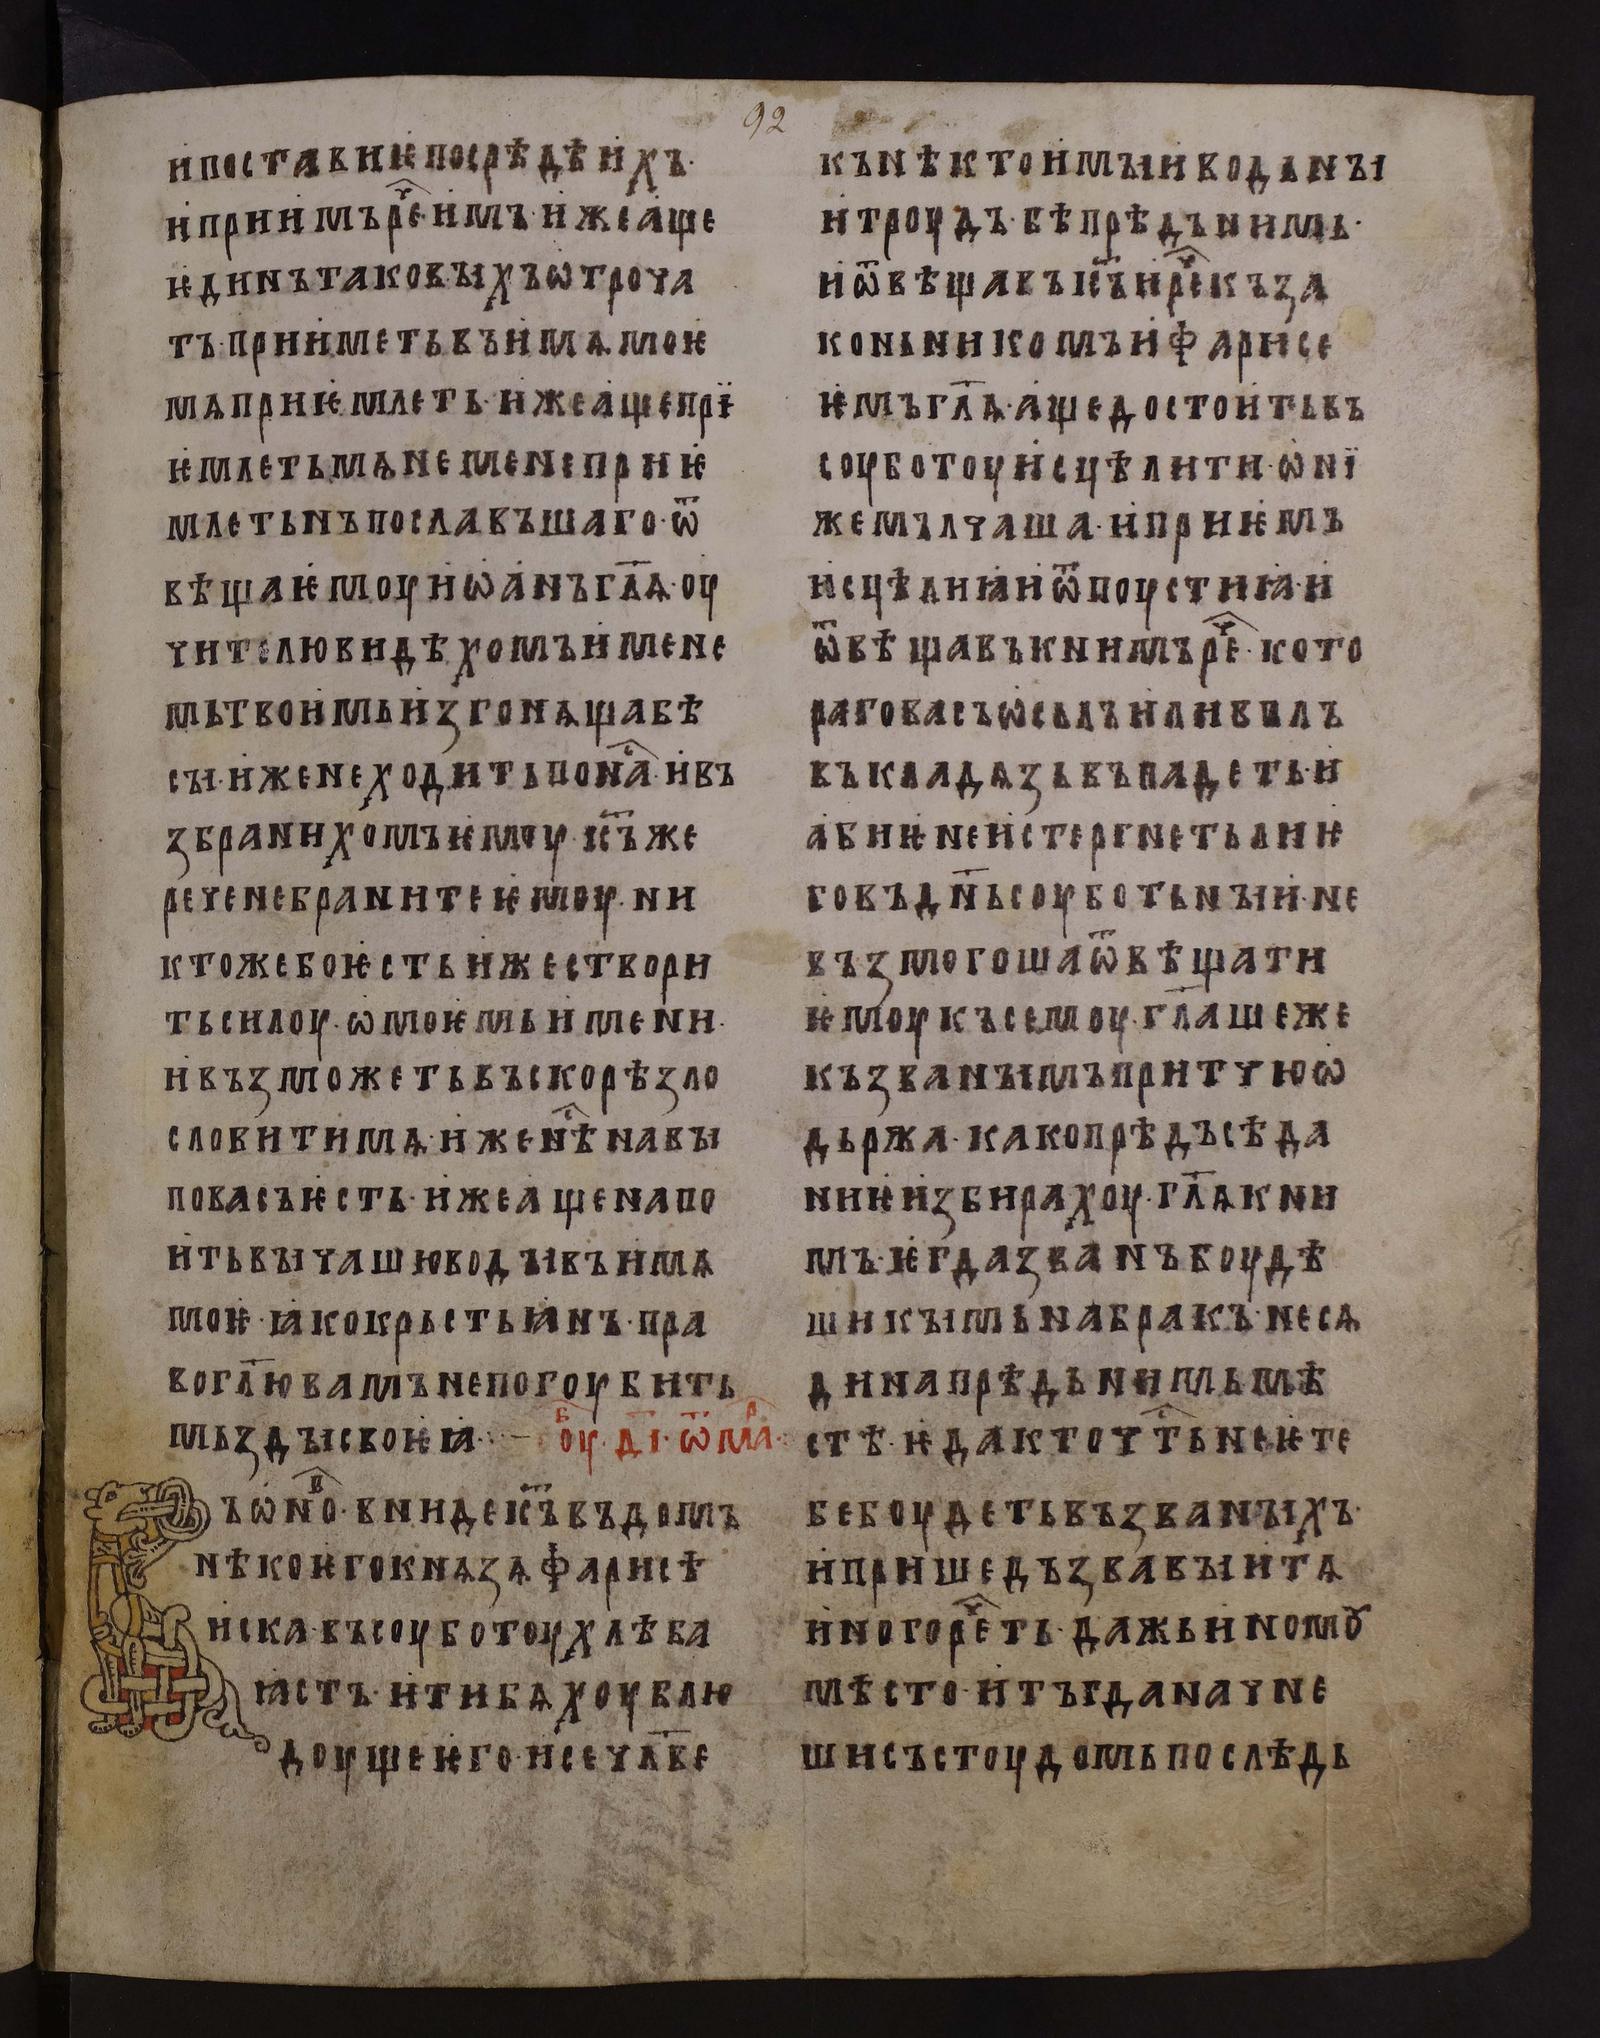 92
и постави ѥ посрѣдѣ ихъ·
и приимъ рⷱ҇е имъ· иже аще
ѥдинъ таковыхъ ѡтроча
тъ· прииметь въ имѧ моѥ
мѧ приѥмлеть· иже аще прї
ѥмлеть мѧ не мене приѥ
млеть нъ пославъшаго· ѿ
вѣща ѥмоу иѡанъ гл҃ѧ· оу
чителю видѣхомъ имене
мь твоимь изгонѧща бѣ
сы· иже не ходить по наⷭ҇· и въ
збранихомъ ѥмоу· іс҃ъ же
рече не браните ѥмоу· ни
ктоже бо ѥсть иже створи
ть силоу· ѡ моѥмь имени·
и възможеть въскорѣ зло
словити мѧ· иже нѣⷭ҇ на вы
по васъ ѥсть· иже аще напо
ить вы чашю воды въ имѧ
моѥ· ꙗко крьстьꙗнъ· пра
во гл҃ю вамъ не погоубить
мьзды своѥꙗ· — соуⷠ· д҃і· ѿ маⷬ·
Въ ѡноⷡ· вниде іс҃ъ въ домъ
нѣкоѥго кнѧзѧ фарисѣ
иска· въ соуботоу хлѣба
ꙗстъ· и ти бѧхоу блю
доуще ѥго· и се чл҃вѣ
къ нѣкто имыи водьныи
и троудъ· бѣ прѣдъ нимь·
и ѿвѣщавъ іс҃ъ и рⷱ҇е къ за
коньникомъ и фарисе
ѥмъ гл҃ѧ· аще достоить въ
соуботоу исцѣлити· ѡнї
же мълчаша· и приѥмъ
исцѣли ꙗ и ѿпоусти ꙗ· и
ѿвѣщавъ к нимъ рⷱ҇е· кото
раго васъ ѡсьлъ или вилъ
въ кладѧзь въпадеть· и
абиѥ не истергнеть ли ѥ
го въ дн҃ь соуботьныи· и не
възмогоша ѿвѣщати
ѥмоу къ семоу· гл҃аше же
къ званымъ притчю ѡ
дьржа· како прѣдъсѣда
ниѥ избирахоу· гл҃ѧ к ни
мъ· ѥгда званъ боудѣ
ши кымь на бракъ· не сѧ
ди на прѣдьнимь мѣ
стѣ· ѥда кто чⷭ҇тьнеѥ те
бе боудеть възваныхъ·
и пришедъ звавыи тѧ
и ного рⷱ҇еть· дажь иномꙋ
мѣсто· и тъгда начне
ши съ стоудомь послѣдь